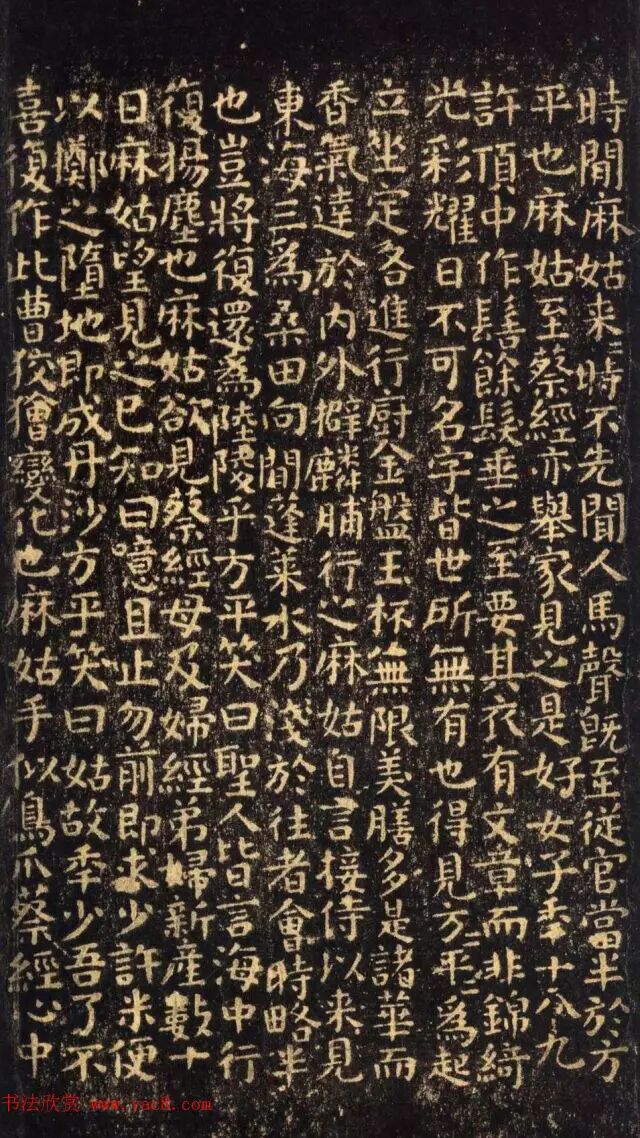 時間麻姑来〻時不先聞人馬聲既至従官當半於方
平也麻姑至蔡經亦舉家見之是好女子年十八九
許頂中作髻餘髮垂之至要其衣有文章而非錦綺
光彩耀日不可名字皆世所無有也得見方〻平〻為起
立坐定各進行厨金盤玉杯無限美膳多是諸華而
香氣達於内外擗麟脯行之麻姑自言接侍以来見
東海三為桑田向間蓬莱水乃淺於往者會時略半
也豈將復還為陸陵乎方平笑曰聖人皆言海中行
復揚塵也麻姑欲見蔡經母及婦經弟婦新産數十
日麻姑望見之已知曰噫且止勿前即求少許米便
以擲之墮地即成丹沙方平笑曰姑故年少吾了不
喜復作此曹狡獪變化也麻姑手似鳥爪蔡經心中
书法欣赏 www.yac8.com